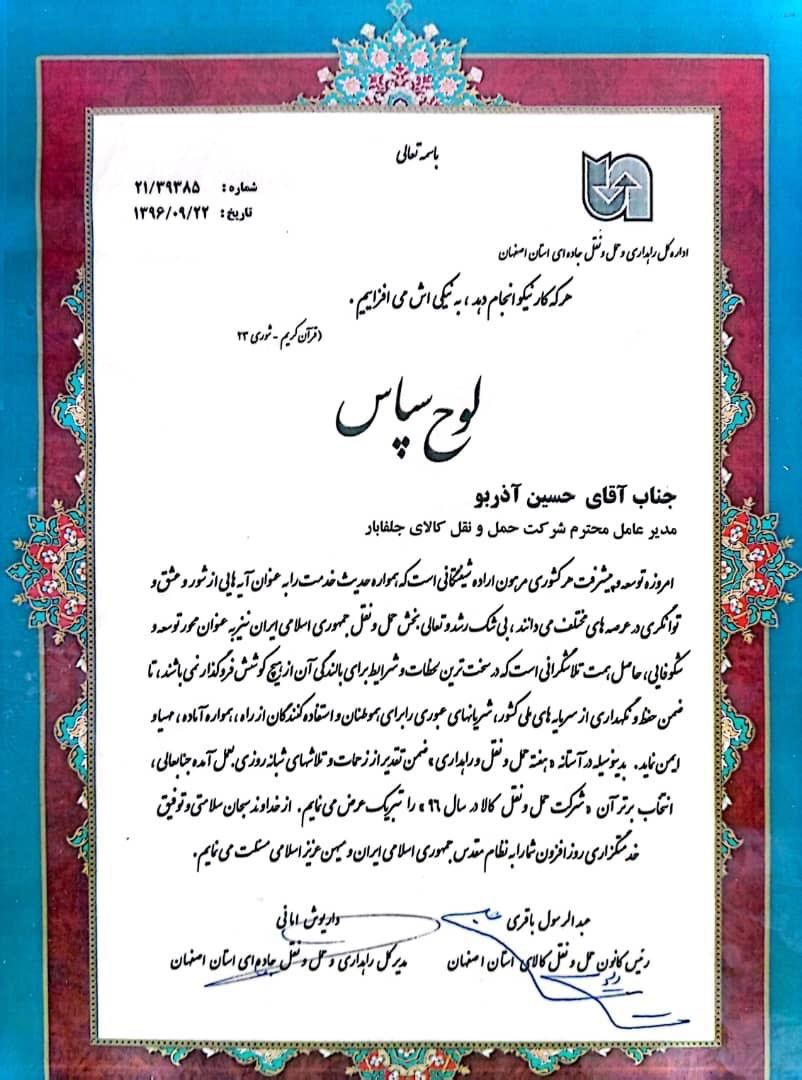 باسمه تعالی
شماره : ۲۱/۳۹۳۸۵
تاریخ : ۱۳۹۶/۰۹/۲۲
اداره کل راهداری و حمل و نقل جاده ای استان اصفهان
هر که کار نیکو انجام دهد ، به نیکی اش می افزاییم .
(قرآن کریم - شوری ۲۳
لوح سپاس
جناب آقای حسین آذربو
مدیر عامل محترم شرکت حمل و نقل کالای جلفابار
امروزه توسعه و پیشرفت هر کشوری مرهون اراده شیفتگانی است که همواره حدیث خدمت را به عنوان آیه هایی از شور و عشق و
توانگری در عرصه های مختلف می دانند ، بی شک رشد و تعالی بخش حمل و نقل جمهوری اسلامی ایران نیز به عنوان محور توسعه و
شکوفایی، حاصل همت تلاشگرانی است که در سخت ترین لحظات و شرایط برای بالندگی آن از هیچ کوشش فروگذار نمی باشند ، تا
ضمن حفظ و نگهداری از سرمایه های ملی کشور، شریانهای عبوری را برای هموطنان و استفاده کنندگان از راه ، همواره آماده ، مهیا و
ایمن نماید. بدینوسیله در آستانه «هفته حمل و نقل و راهداری» ضمن تقدیر از زحمات و تلاشهای شبانه روزی بعمل آمده جنابعالی ،
انتخاب برتر آن «شرکت حمل و نقل کالا در سال ۹۶» را تبریک عرض می نمایم . از خداوند سبحان سلامتی و توفیق
خدمتگزاری روز افزون شما را به نظام مقدس جمهوری اسلامی ایران و میهن عزیز اسلامی مسئلت می نمایم.
عبدالرسول باقری
رئیس کانون حمل و نقل کالای استان اصفهان
داریوش امانی
مدیر کل راهداری و حمل و نقل جاده ای استان اصفهان